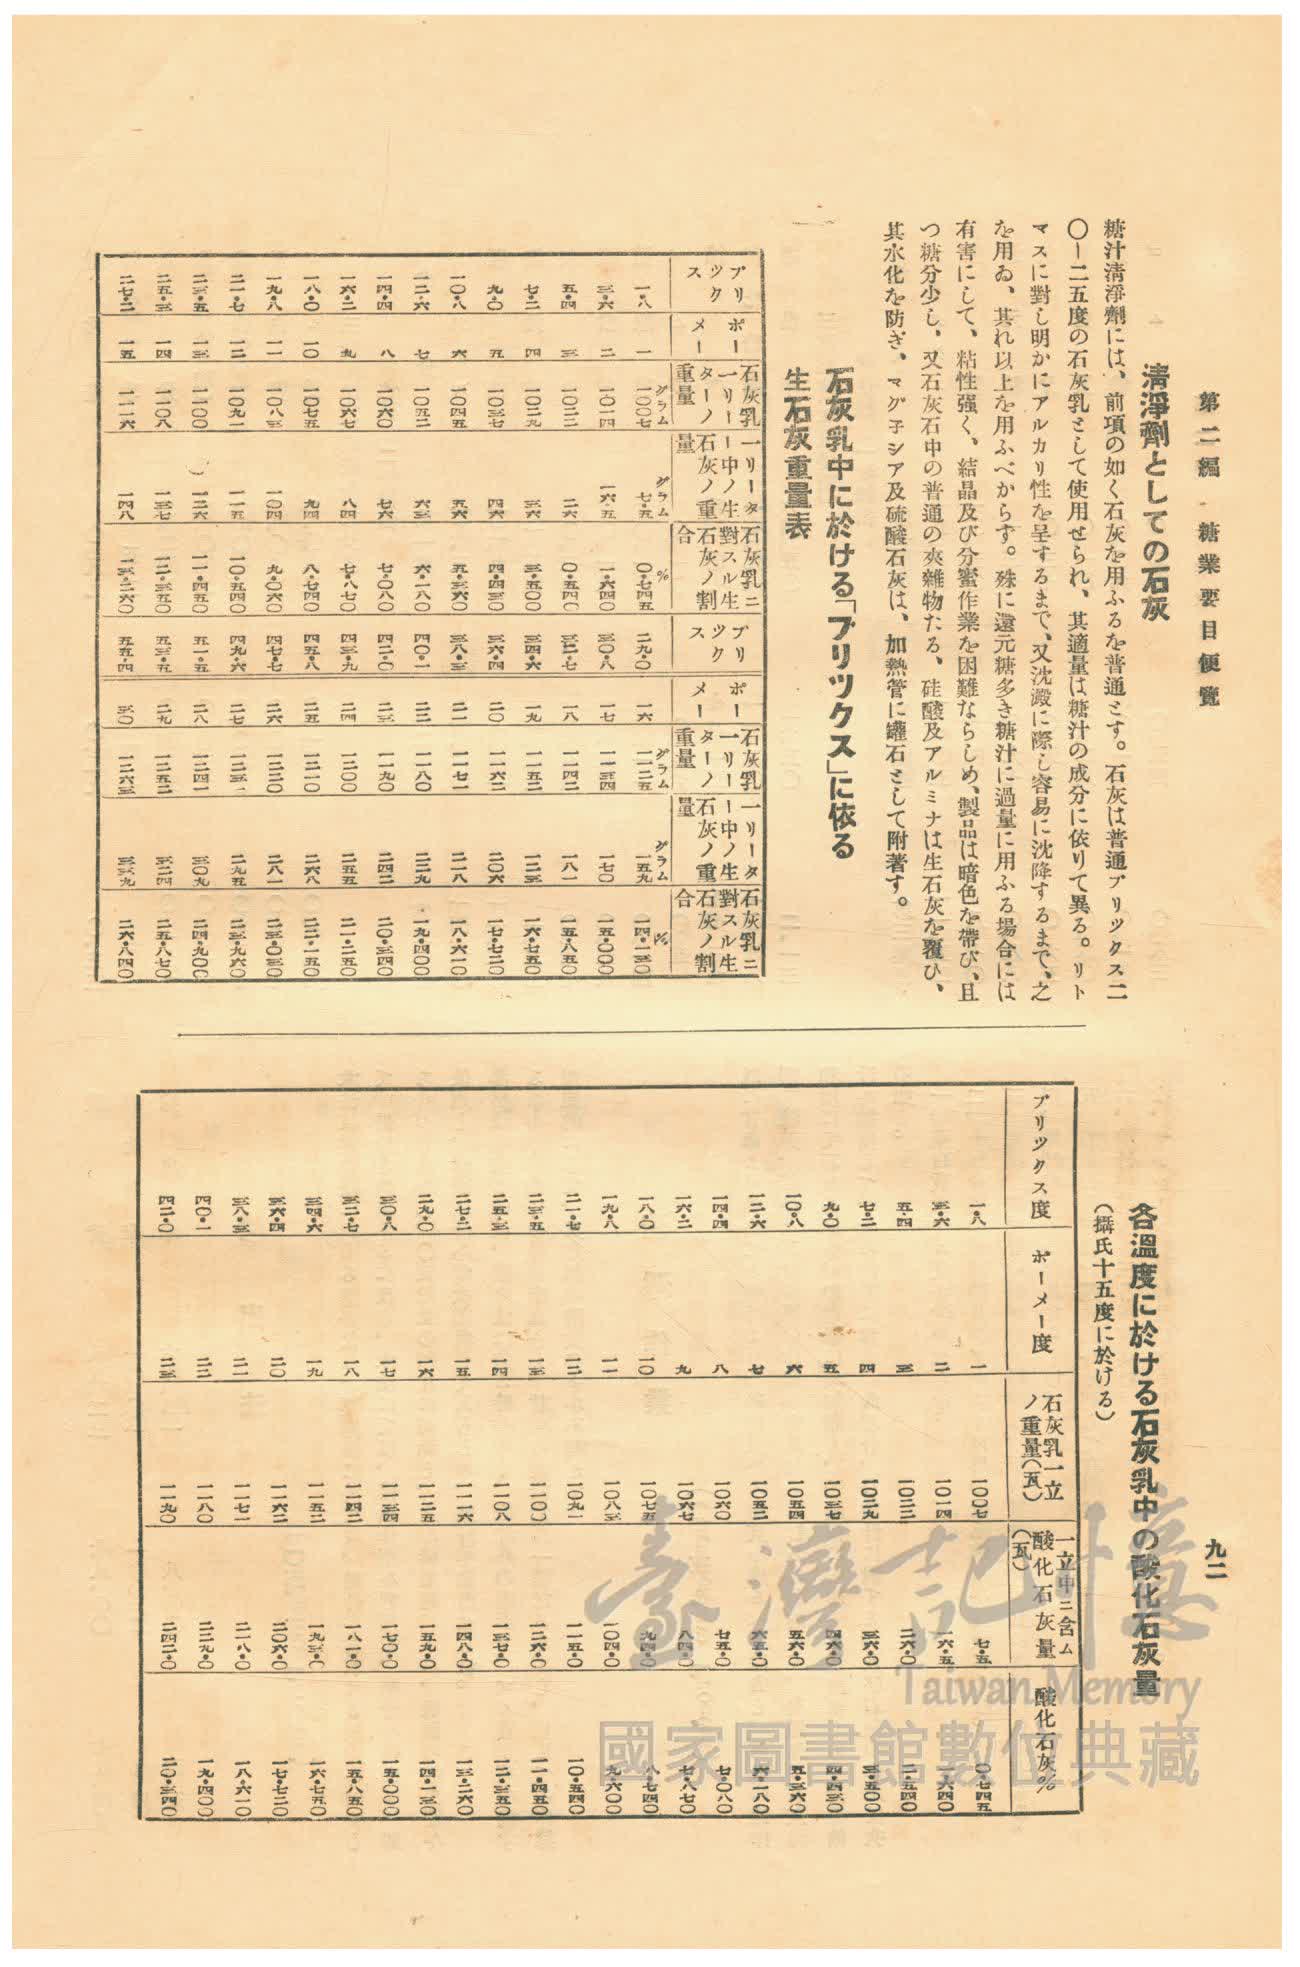 第二編　糖業要目便覽
九二
清淨劑としての石灰
糖汁清淨劑には、前項の如く石灰を用ふるを普通とす。石灰は普通ブリックス二
〇ー二五度の石灰乳として使用せられ、其適量は糖汁の成分に依りて異る。リト
マスに對し明かにアルカリ性を呈するまで、又沈澱に際し容易に沈降するまで、之
を用ゐ、其れ以上を用ふべからず。殊に還元糖多き糖汁に過量に用ふる場合には
有害にして、粘性强く、結晶及び分蜜作業を困難ならしめ、製品は暗色を帶び、且
つ糖分少し、又石灰石中の普通の夾雜物たる、硅酸及アルミナは生石灰を覆ひ、
其水化を防ぎ、マグ子シア及硫酸石灰は、加熱管に罐石として附著す。
石灰乳中に於ける「ブリツクス」に依る
生石灰重量表
ブリツクス　ボーメー　石灰乳一リーターノ重量　一リーター中ノ生石灰ノ重量　石灰乳ニ對スル生石灰ノ割合　ブリツクス　ボーメー　石灰乳一リーターノ重量　一リーター中ノ生石灰ノ重量　石灰乳ニ對スル生石灰ノ割合
グラム　グラム　%　グラム　グラム　%
一・八　一　一〇〇七　七・五　〇・七四五　二九・〇　一六　一一二五　一五九　一四・一三〇
三・六　二　一〇一四　一六・五　一・六四〇　三〇・八　一七　一一三四　一七〇　一五・〇〇〇
五・四　三　一〇二二　二六　〇・五四〇　三二・七　一八　一一四二　一八一　一五・八五〇
七・二　四　一〇二九　三六　三・五〇〇　三四・六　一九　一一五二　一二三　一六・七五〇
九・〇　五　一〇三七　四六　四・四三〇　三六・四　二〇　一一六二　二〇六　一七・七二〇
一〇・八　六　一〇四五　五六　五・三六〇　三八・三　二一　一一七一　二一八　一八・六一〇
一二・六　七　一〇五二　六三　六・一八〇　四〇・一　二二　一一八〇　二二九　一九・四〇〇
一四・四　八　一〇六〇　七六　七・〇八〇　四二・〇　二三　一一九〇　二四二　二〇・三四〇
一六・二　九　一〇六七　八四　七・八七〇　四三・九　二四　一二〇〇　二五五　二一・二五〇
一八・〇　一〇　一〇七五　九四　八・七四〇　四五・八　二五　一二一〇　二六八　二二・一五〇
一九・八　一一　一〇八三　一〇四　九・〇六〇　四七・七　二六　一二二〇　二八一　二三・〇三〇
二一・七　一二　一〇九一　一一五　一〇・五四〇　四九・六　二七　一二三一　二九五　二三・九六〇
二三・五　一三　一一〇〇　一二六　一一・四五〇　五一・五　二八　一二四一　三〇九　二四・九〇〇
二五・三　一四　一一〇八　一三七　一二・三五〇　五三・五　二九　一二五二　三二四　二五・八七〇
二七・二　一五　一一一六　一四八　一三・二六〇　五五・四　三〇　一二六三　三三九　二六・八四〇
各溫度に於ける石灰乳中の酸化石灰量
（攝氏十五度に於ける）
ブリツクス度　ボーメー度　石灰乳一立ノ重量（瓦）　一立中ニ含ム酸化石灰量（瓦）　酸化石灰%
一・八　一　一〇〇七　七・五　〇・七四五
三・六　二　一〇一四　一六・五　一・六四〇
五・四　三　一〇二二　二六・〇　二・五四〇
七・二　四　一〇二九　三六・〇　三・五〇〇
九・〇　五　一〇三七　四六・〇　四・四三〇
一〇・八　六　一〇五四　五六・〇　五・三六〇
一二・六　七　一〇五二　六五・〇　六・一八〇
一四・四　八　一〇六〇　七五・〇　七・〇八〇
一六・二　九　一〇六七　八四・〇　七・八七〇
一八・〇　一〇　一〇七五　九四・〇　八・七四〇
一九・八　一一　一〇八三　一〇四・〇　九・六〇〇
二一・七　一二　一〇九一　一一五・〇　一〇・五四〇
二三・五　一三　一一〇〇　一二六・〇　一一・四五〇
二五・三　一四　一一〇八　一三七・〇　一二・三五〇
二七・二　一五　一一一六　一四八・〇　一三・二六〇
二九・〇　一六　一一二五　一五九・〇　一四・一三〇
三〇・八　一七　一一三四　一七〇・〇　一五・〇〇〇
三二・七　一八　一一四二　一八一・〇　一五・八五〇
三四・六　一九　一一五二　一九三・〇　一六・七五〇
三六・四　二〇　一一六二　二〇六・〇　一七・七二〇
三八・三　二一　一一七一　二一八・〇　一八・六一〇
四〇・一　二二　一一八〇　二二九・〇　一九・四〇〇
四二・〇　二三　一一九〇　二四二・〇　二〇・三四〇
臺灣記憶
Taiwan Memory
國家圖書館數位典藏